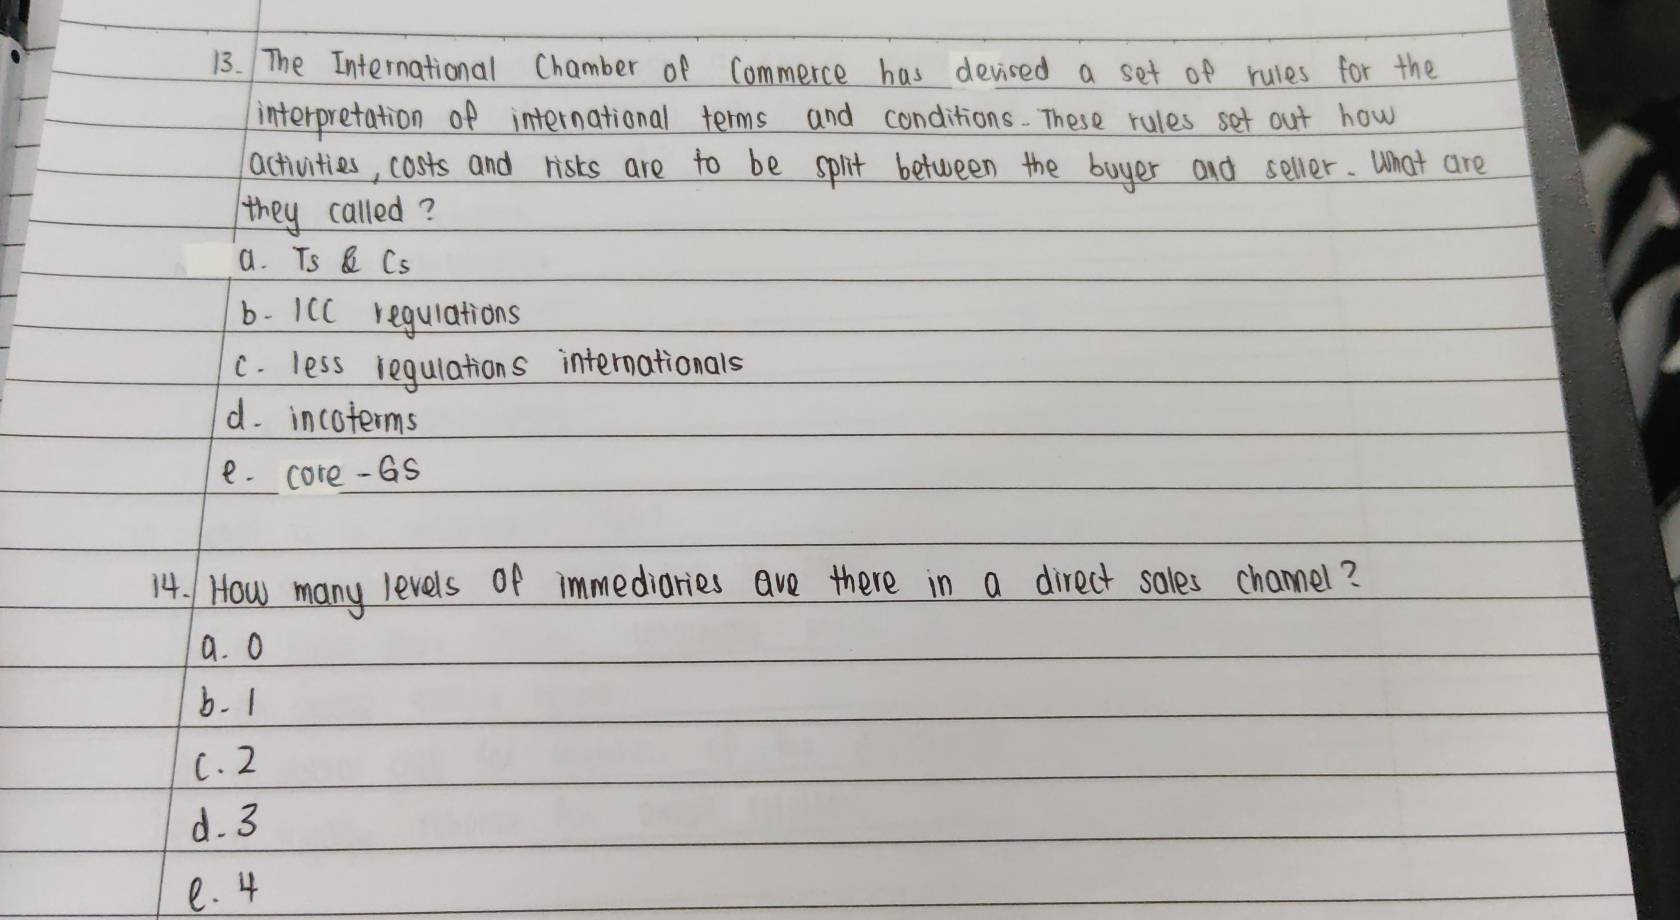 13. The International Chamber of Commerce has devised a set of rules for the
interpretation of international terms and conditions. These rules set out how
activities, costs and risks are to be split between the buyer and seller. What are
they called?
a. Ts & Cs
b. ICC regulations
c. less regulations internationals
d. incoterms
e. core - GS
14. How many levels of immediaries are there in a direct sales channel?
a. 0
b. 1
c. 2
d. 3
e. 4